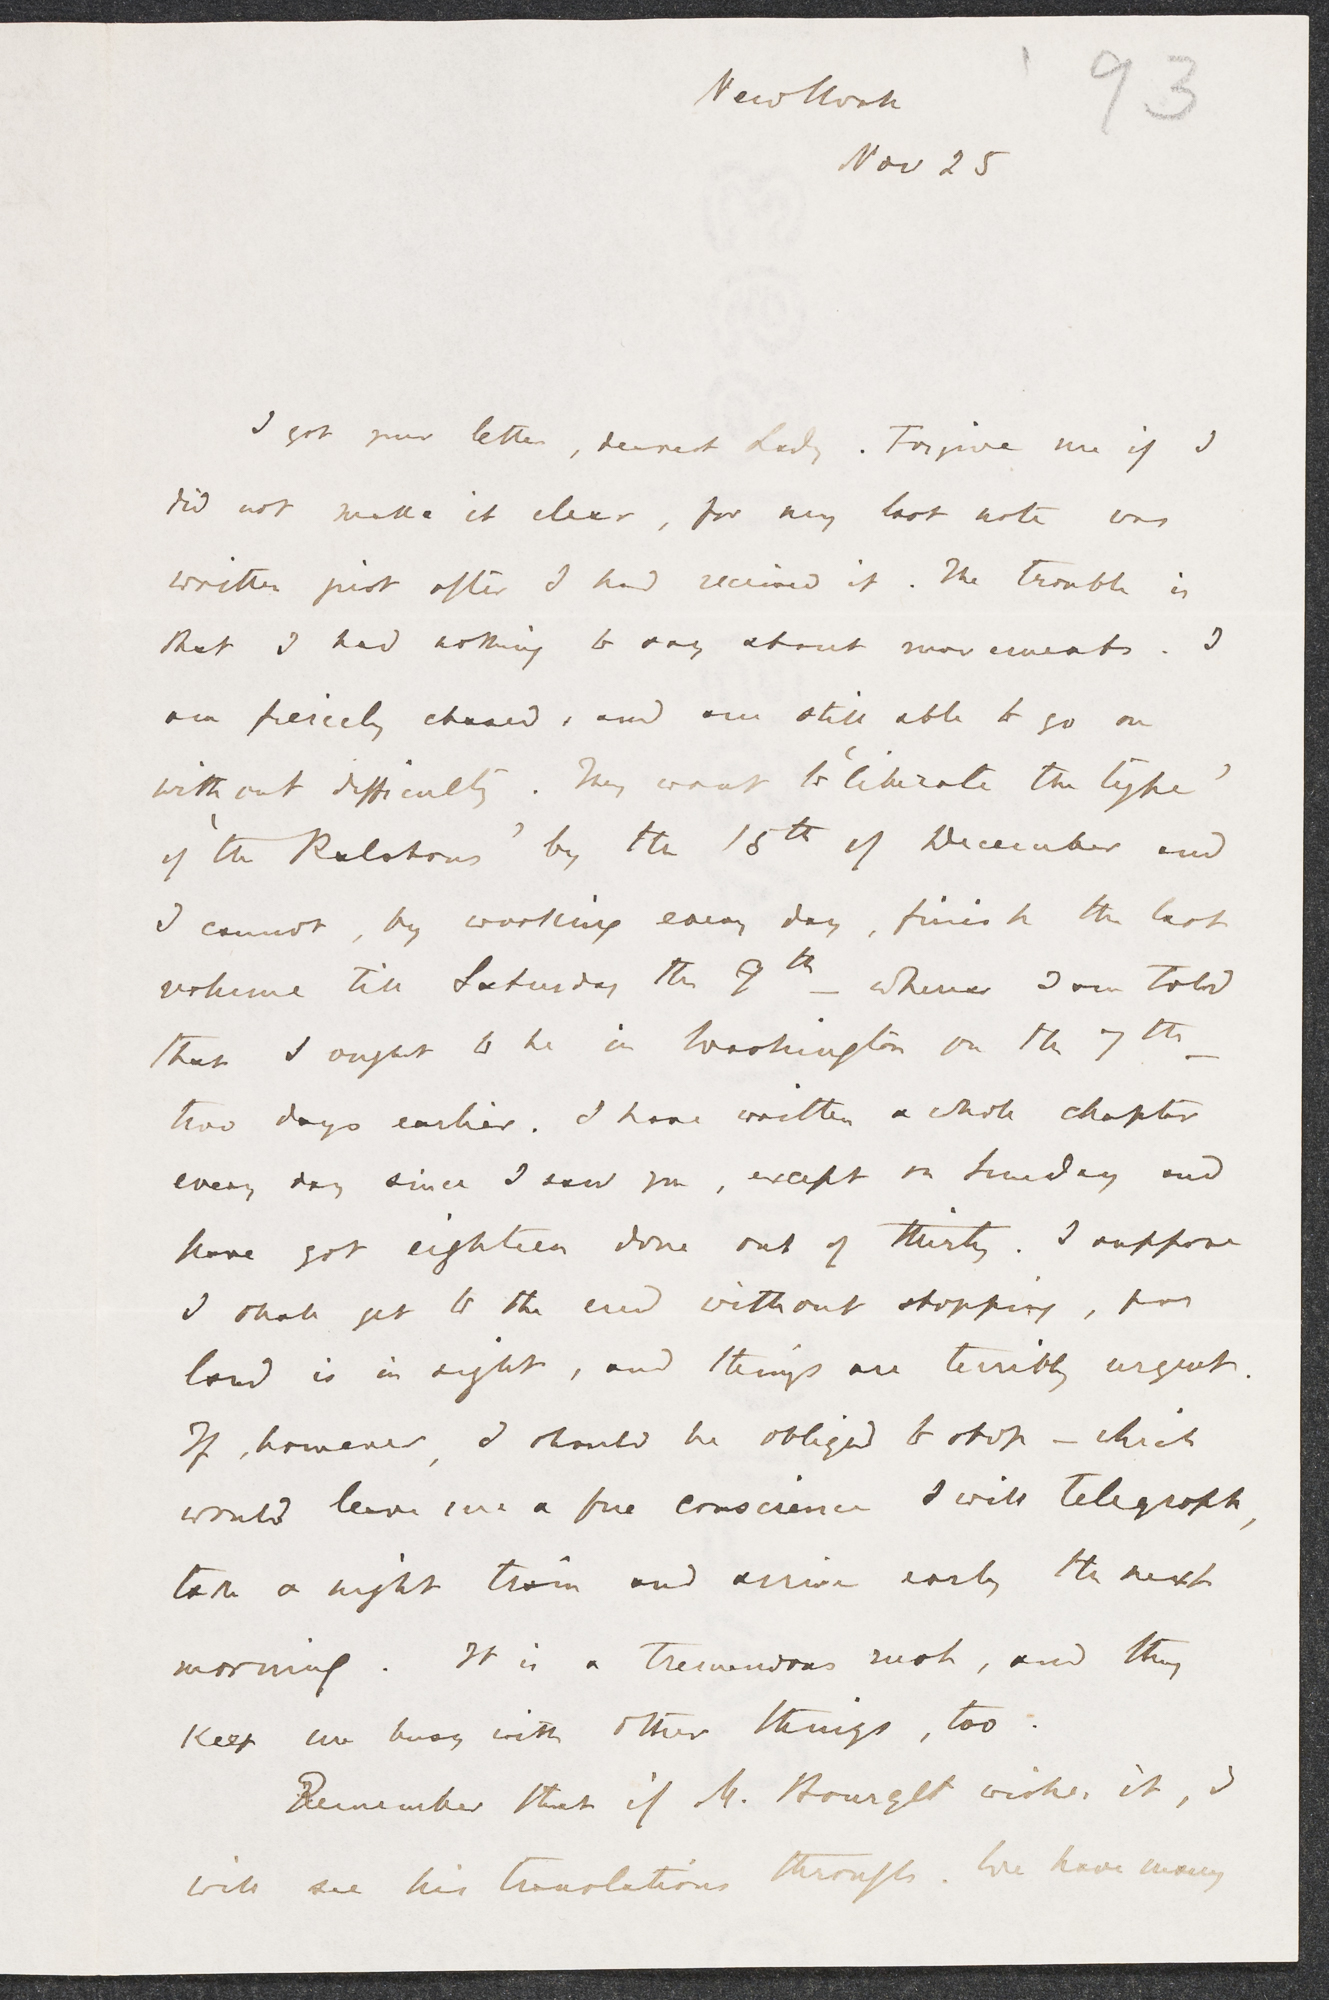 '93
New York
Nov 25
I got your letter, dearest Lady. Forgive me if I
did not make it clear, for my last note was
written just after I had received it. The trouble is
that I had nothing to say about movements. I
am fiercely chased, and am still able to go on
without difficulty. They want to 'liberate the type'
of 'the Ralstons' by the 15th of December and
I cannot, by working every day, finish the last
volume till Saturday the 9th _ whereas I am told
that I ought to be in Washington on the 7th _
two days earlier. I have written a whole chapter
every day since I saw you, except on Sunday and
have got eighteen done out of thirty. I suppose
I shall get to the end without stopping, for
land is in sight, and things are terribly urgent.
If, however, I should be obliged to stop _ which
would leave me a free conscience I will telegraph,
take a night train and arrive early the next
morning. It is a tremendous rush, and they
keep me busy with other things, too.
Remember that if M. Bourget wishes it, I
will see his translations through. We have many